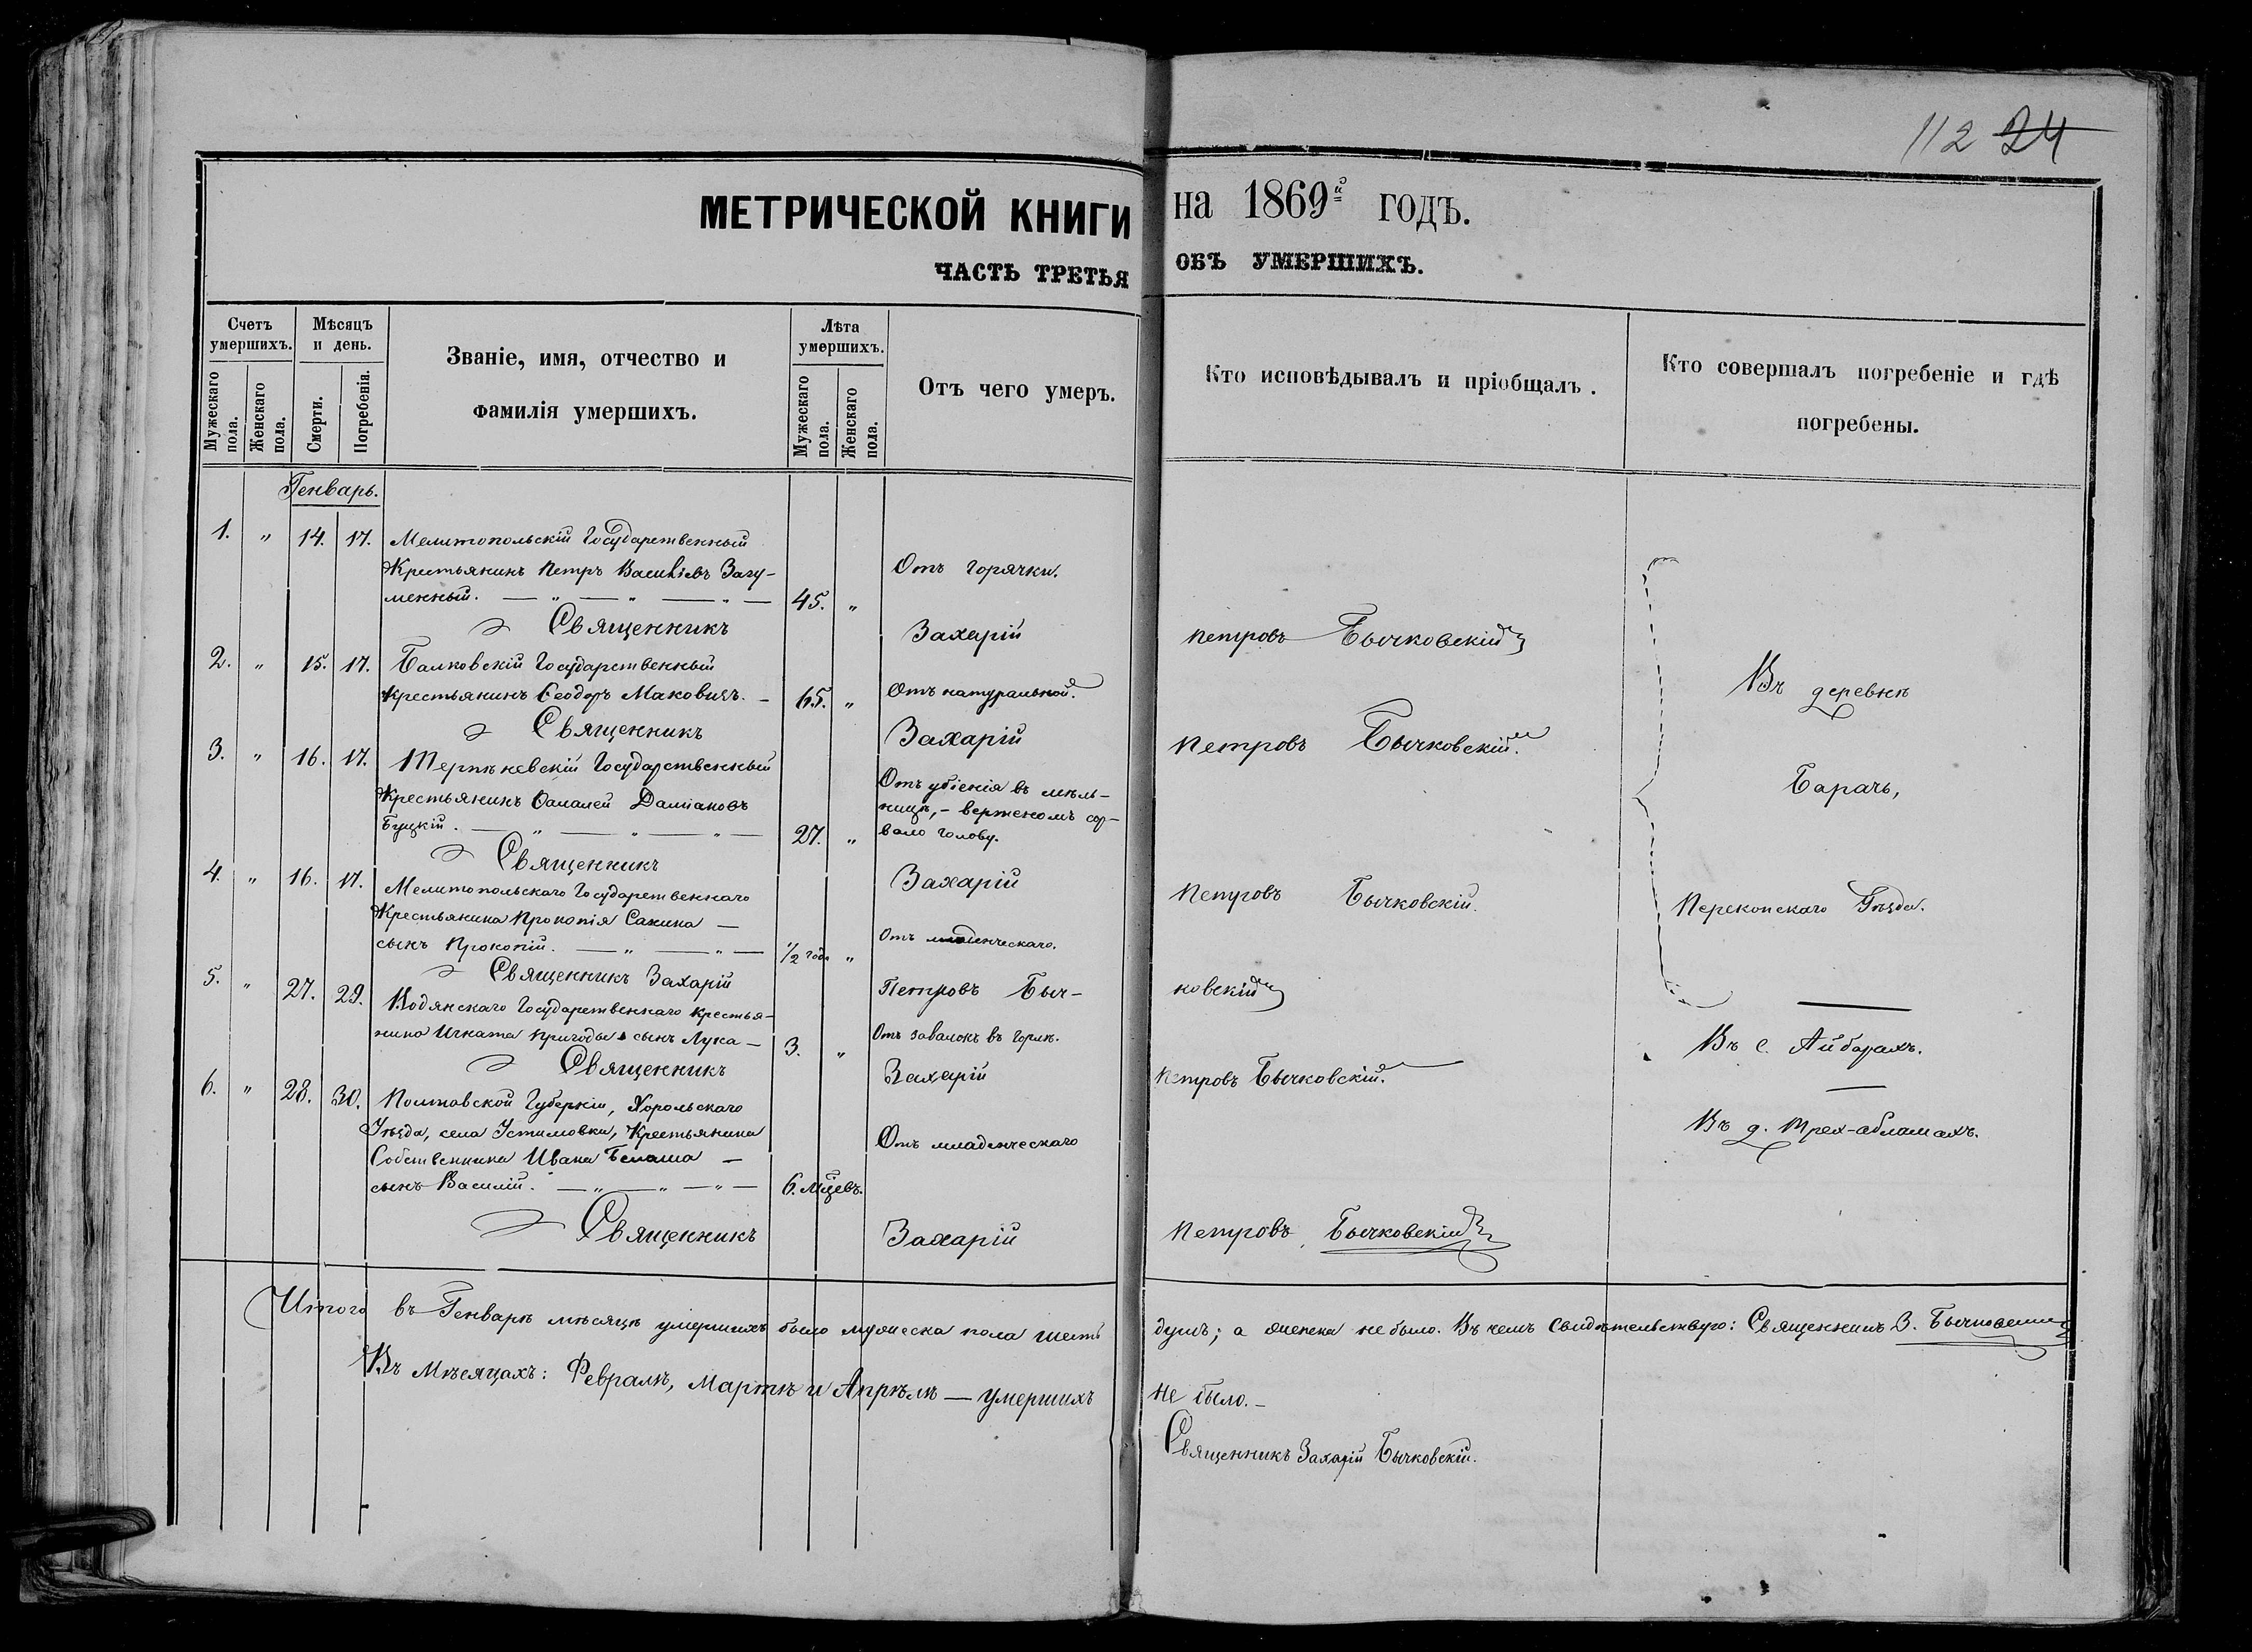 112 24
МЕТРИЧЕСКОЙ КНИГИ на 1869й годъ.
ЧАСТЬ ТРЕТЬЯ ОБЪ УМЕРШИХЪ.
Счетъ умершихъ.
Мѣсяцъ и день.
Званіе, имя, отчество и фамилія умершихъ.
Лѣта умершихъ.
Отъ чего умеръ.
Кто исповѣдывалъ и пріобщалъ.
Кто совершалъ погребеніе и гдѣ погребены.
Мужескаго пола.
Женскаго пола.
Смерти.
Погребенія.
Мужескаго пола.
Женскаго пола.
Генварь.
1. " 14. 17. Мелитопольскій Государственный
Крестьянинъ Петръ Васильевъ Загу- Отъ горячки.
менный. — " — " — " — 45. "
Священникъ Захарій Петровъ Бычковскій
2. " 15. 17. Балковскій Государственный
Крестьянинъ Ѳеодоръ Маковичъ. — 65. " Отъ натуральной.
Священникъ Захарій Петровъ Бычковскій.
3. " 16. 17. Терпѣневскій Государственный
Крестьянинъ Даміановъ Отъ убіенія въ мѣль-
Буцкій. — " — " — " — 27. " ницѣ, - вертеномъ сор-
вало голову.
Священникъ Захарій Петровъ Бычковскій.
4. " 16. 17. Мелитопольскаго Государственнаго
Крестьянина Прокопія Сакина —
сынъ Прокопій. — " — " — 1/2 года " Отъ младенческаго.
Священникъ Захарій Петровъ Быч- ковскій
5. " 27. 29. Водянскаго Государственнаго крестья-
нина Игната Пригоды сынъ Лука — 3. " Отъ завалокъ въ горлѣ.
Священникъ Захарій Петровъ Бычковскій.
6. " 28. 30. Полтавской Губерніи, Хорольскаго
Уѣзда, села Устимовки, Крестьянина
Собственника Ивана Белаша — Отъ младенческаго
сынъ Василій. — " — " — " — 6. мцевъ.
Священникъ Захарій Петровъ Бычковскій
Въ деревнѣ
Барачь,
Перекопскаго Уѣзда.
Въ с. Айбарахъ.
Въ д. Трех-абламахъ.
Итого въ Генварѣ мѣсяцѣ умершихъ было мужеска пола шесть душъ; а женска не было. Въ чемъ свидѣтельствую: Священникъ З. Бычковскій
Въ Мѣсяцахъ: Февралѣ, Мартѣ и Апрѣлѣ — умершихъ не было. —
Священникъ Захарій Бычковскій.